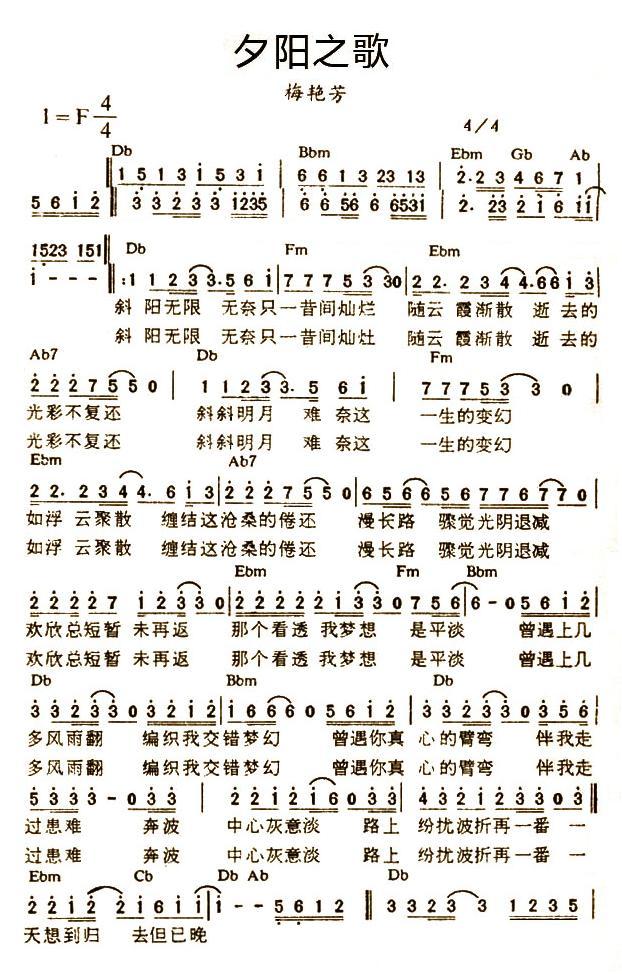 夕阳之歌
梅艳芳
1=F 4/4
4/4
Db Bbm Ebm Gb Ab
1 5 1 3 i 5 3 i 6 6 1 3 23 13 2·23 4 6 7 1
5 6 i 2 3 3 2 3 3 i235 6 6 56 6 6531 2· 23 2 i 6 i i
1523 151 Db Fm Ebm
i - - - :1 1 2 3 3·5 6 i 7 7 7 5 3 3 0 2 2· 2 3 4 4·6 6 i 3
斜 阳无限 无奈只一昔间灿烂 随云 霞渐散 逝 去的
斜 阳无限 无奈只一昔间灿灶 随云 霞渐散 逝 去的
Ab7 Db Fm
2 2 2 7 5 5 0 1 1 2 3 3· 5 6 i 7 7 7 5 3 3 0
光彩不复还 斜斜明月 难 奈这 一生的变幻
光彩不复还 斜斜明月 难 奈这 一生的变幻
Ebm Ab7
2 2· 2 3 4 4· 6 i 3 2 2 2 7 5 5 0 6 5 6 6 5 6 7 7 6 7 7 0
如浮 云聚散 缠结这沧桑的倦还 漫长路 骤觉光阴退减
如浮 云聚散 缠结这沧桑的倦还 漫长路 骤觉光阴退减
Ebm Fm Bbm
2 2 2 2 7 i 2 3 3 0 2 2 2 2 2 i 3 3 0 7 5 6 6 - 0 5 6 i 2
欢欣总短暂 未再返 那个看透 我梦想 是平淡 曾遇上几
欢欣总短暂 未再返 那个看透 我梦想 是平淡 曾遇上几
Db Bbm Db
3 3 2 3 3 0 3 2 i 2 i 6 6 6 0 5 6 i 2 3 3 2 3 3 0 3 5 6
多风雨翻 编织我交错梦幻 曾遇你真 心的臂弯 伴我走
多风雨翻 编织我交错梦幻 曾遇你真 心的臂弯 伴我走
5 3 3 3 - 0 3 3 2 2 i 2 i 6 0 3 3 4 3 2 i 2 3 3 0 3
过患难 奔波 中心灰意淡 路上 纷扰波折再一番 一
过患难 奔波 中心灰意淡 路上 纷扰波折再一番 一
Ebm Cb Db Ab Db
2 2 i 2 2 i 6 i i i - - 5 6 1 2 3 3 2 3 3 1 2 3 5
天想到归 去但已晚